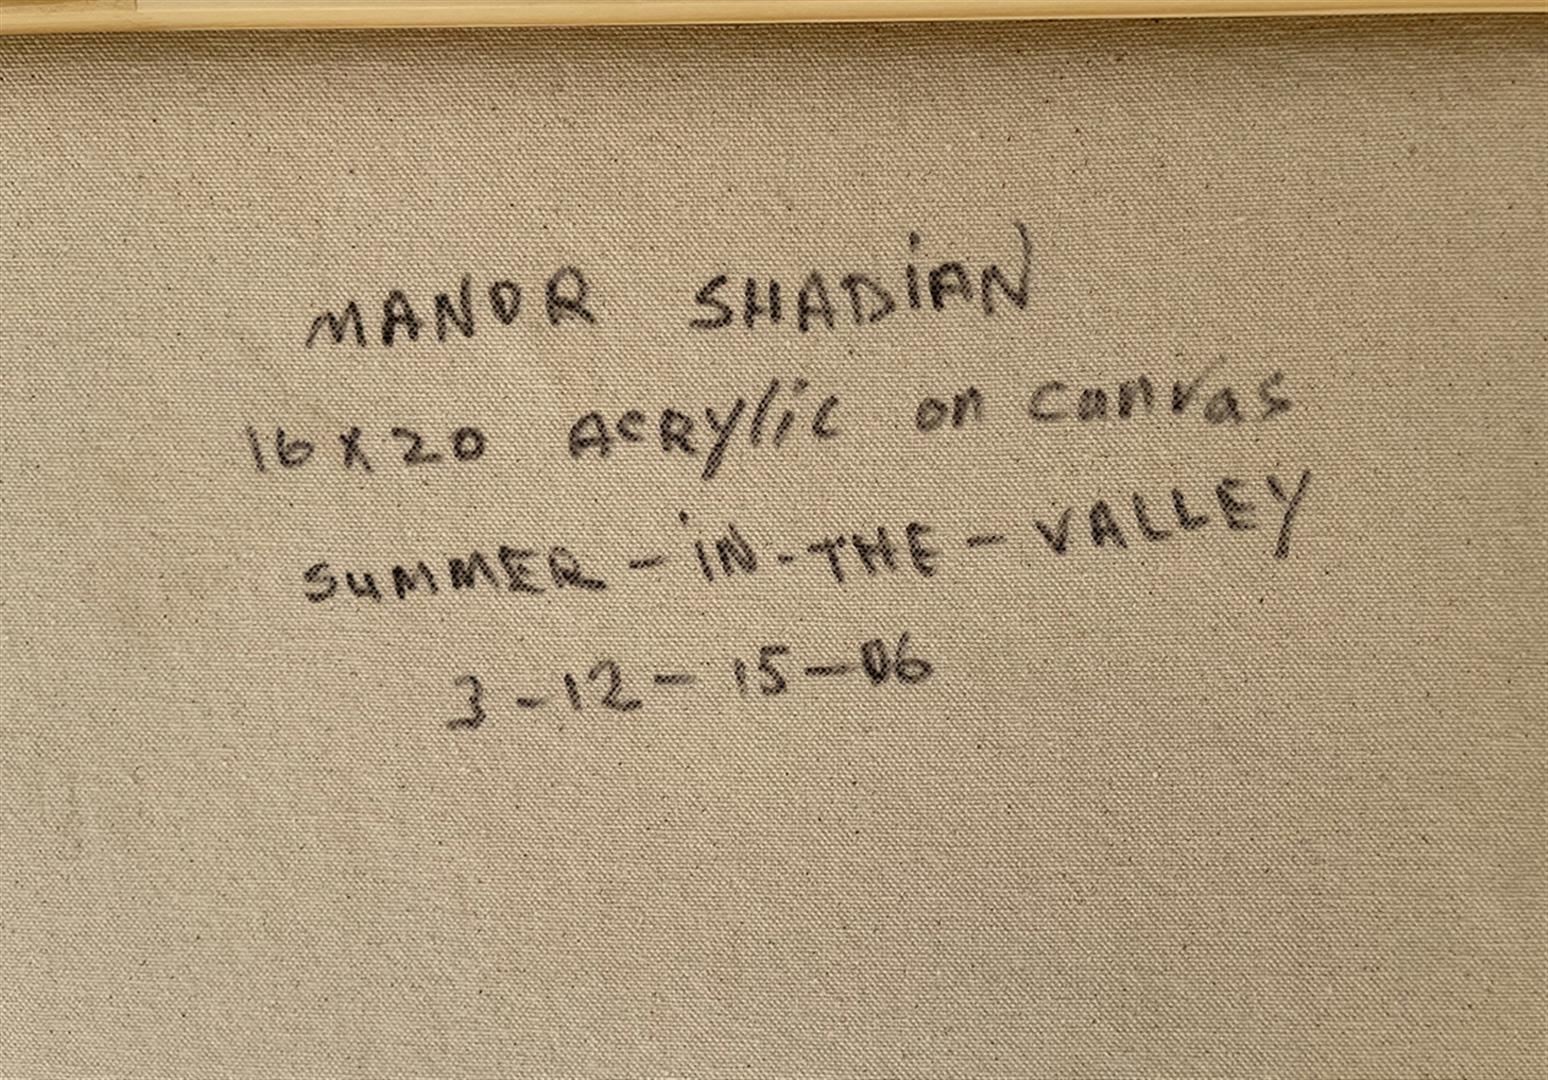 MANOR SHADiAN
16X20 ACRYlic on canvas
SUMMER-iN-THE-VALLEY
3-12-15-06